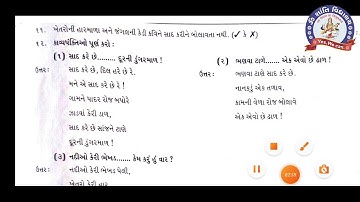 ૧૧. ખેતરોની હારમાળા અને જંગલની કેડી કવિને સાદ કરીને બોલાવતા નથી. (✓ કે ✗)
૧૨. કાવ્યપંક્તિઓ પૂર્ણ કરો :
(૧) સાદ કરે છે......... દૂરની ડુંગરમાળ !
ઉત્તર : સાદ કરે છે, દિલ હરે છે રે.
મને એ સાદ કરે છે રે !
ગામને પાદર રોજ બપોરે
ઝાડવાં કેરી ડાળ,
સાદ કરે છે સાંજને ટાણે
દૂરની ડુંગરમાળ !
(૩) નદીઓ કેરી ભેખડ....... કેમ કરું હું વાર ?
ઉત્તર : નદીઓ કેરી ભેખડ ઘેલી,
ખેતરો કેરી હાર
(૨) ભણવા ટાણે...... એક એવો છે ઢાળ !
ઉત્તર : ભણવા ટાણે સાદ કરે છે.
નાનકડું એક તળાવ,
કામની વેળા રોજ બોલાવે
એક એવો છે ઢાળ !